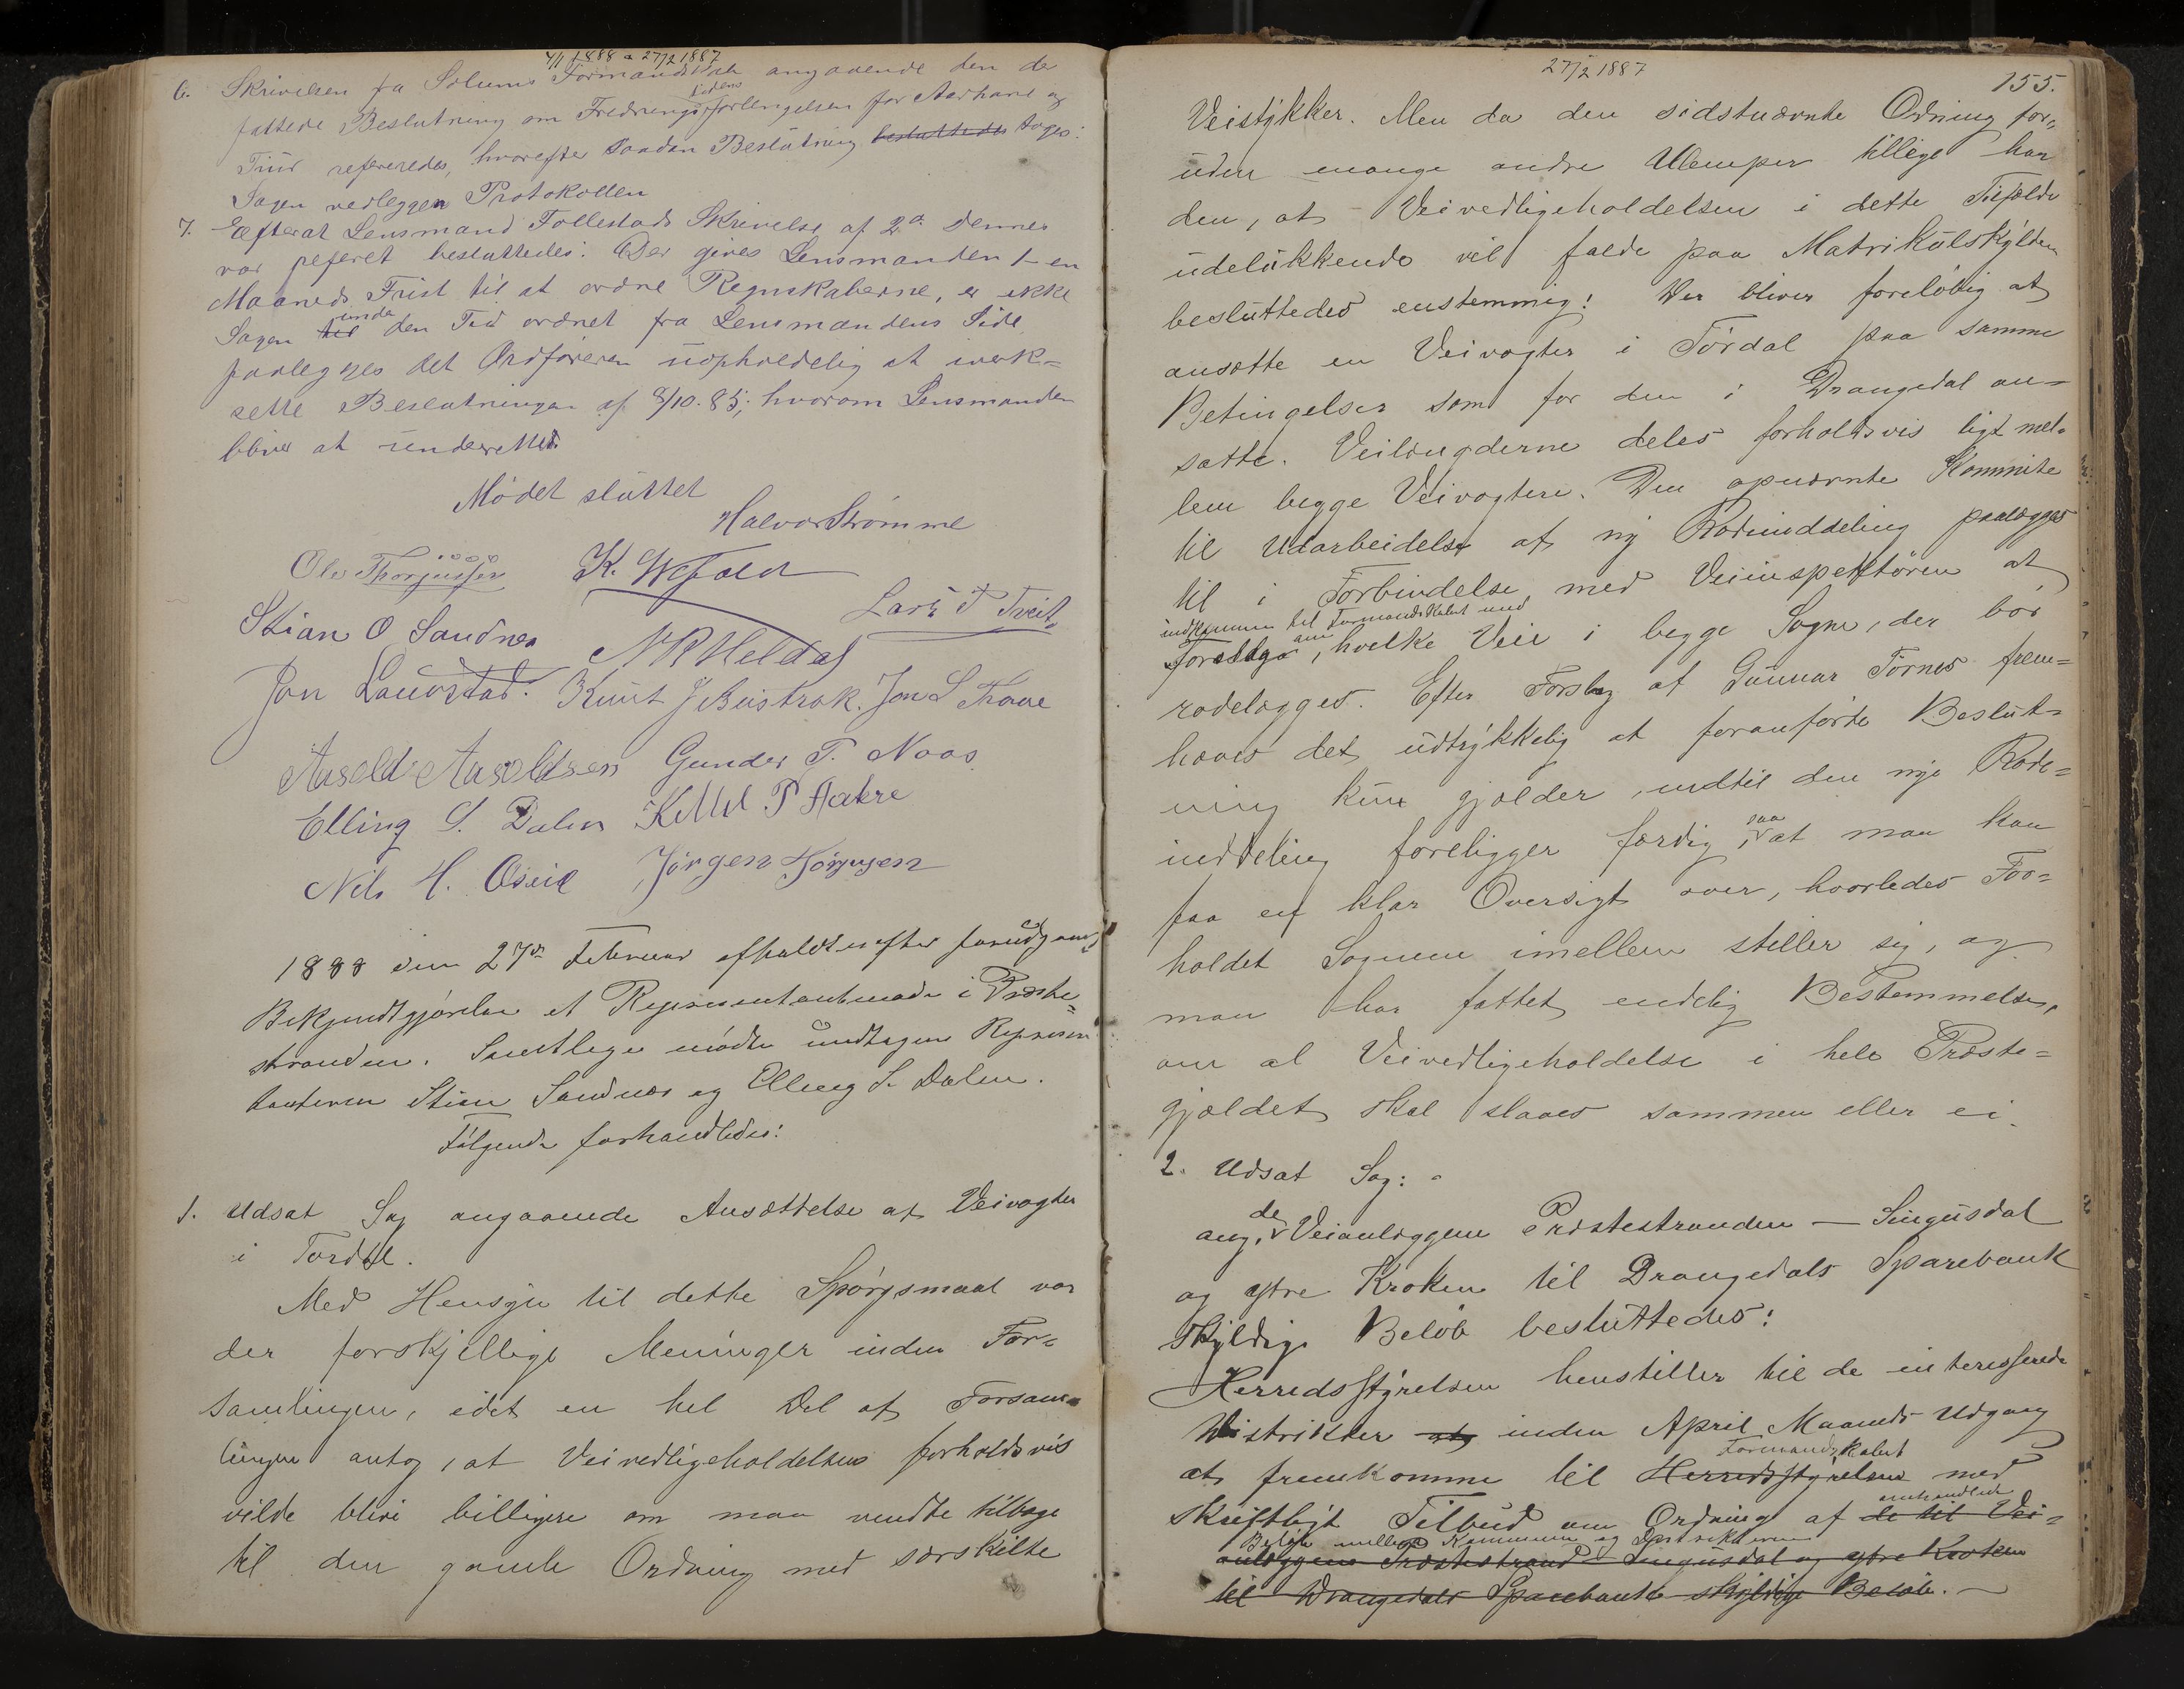 4/1 1888 a 27/2 1887
6. Skrivelsen fra Solums Formandskab angaaende den der
fattede Beslutning om Frednings tidens forlængelsen for Aarhane og
Tiur refereredes, hvorefter saadan Beslutning besluttedes toges:
Sagen vedlegges Protokollen
7. Efterat Lensmand Tollestads Skrivelse af 2d. Dennes
var referet besluttedes: Der gives Lensmanden 1 en
Maaneds Frist til at ordne Regnskaberne, er ikke
Sagen til inden den Tid ordnet fra Lensmandens Side
paalegges det Ordføreren uopholdelig at iverk=
sette Beslutningen af 8/10. 85; hvorom Lensmanden
bliver at underrettes
Mødet sluttet
Halvor Strømme
Ole Thorjussen K. Wefald
Lars T Tveit
Stian O Sandnes
N R Heldal
Jon Lauvstad. Knut J Bustrak. Jon S Tveane
Aasold Aasoldsen Gunder T. Naas
Elling S. Dalen Kittel P Aakre
Nils H. Oseid Jørgen Jørgensen
1888 den 27de Februar afholdtes efter forudgaaende
Bekjendtgjørelse et Representantmøde i Præste=
stranden. Samtlige mødte undtagen Represen
tanterne Stian Sandnes og Elling S. Dalen.
Følgende forhandledes:
1. Udsat Sag angaaende Ansættelse af Veivogter
i Tordal.
Med Hensyn til dette Spørgsmaal var
der forskjellige Meninger inden For=
samlingen, idet en hel Del af Forsam=
lingen antog, at Veivedligeholdelsen forholdsvis
vilde blive billigere om man vendte tilbage
til den gamle Ordning med særskilte
27/2 1887
155.
Veistykker. Men da den sidstnævnte Ordning for=
uden mange andre Ulemper tillige har
den, at Veivedligeholdelsen i dette Tilfælde
udelukkende vil falde paa Matrikulskylden
besluttedes enstemmig: Der bliver foreløbig at
ansætte en Veivogter i Tørdal paa samme
Betingelser som for den i Drangedal an=
satte. Veilængderne deles forholdsvis ligt mel=
lem begge Veivogtere. Den opnævnte Kommite
til Udarbeidelse af ny Rodeinddeling paalægges
til i Forbindelse med Veiinspektøren at
indkomme til Formandskabet med
Foreslaga om, hvilke Veie i begge Sogne, der bør
rodelægges. Efter Forslag af Gunnar Tørnes frem=
hæves det udtrykkelig at foranførte Beslut=
ning kun gjælder, indtil den nye Rode=
inddeling foreligger færdig, saa at man kan
faa en klar Oversigt over, hvorledes For=
holdet Sognene imellem stiller sig, og
man har fattet endelig Bestemmelse,
om al Veivedligeholdelse i hele Præste=
gjældet skal slaaes sammen eller ei.
2. Udsat Sag:
ang. de Veianlæggene Præstestranden — Singusdal
og ytre Kroken til Drangedals Sparebank
skyldige Beløb besluttedes:
Herredsstyrelsen henstiller til de interesserede
Distrikter at inden April Maaneds Udgang
at fremkomme til Herredsstyrelsen Formandskabet med
skriftligt Tilbud om Ordning af de til Vei= omhandlede
Beløb mellem Kommunen og Distrikterne
anlæggene Præstestrand - Singusdal og ytre Kroken
til Drangedals Sparebank skyldige Beløb. —